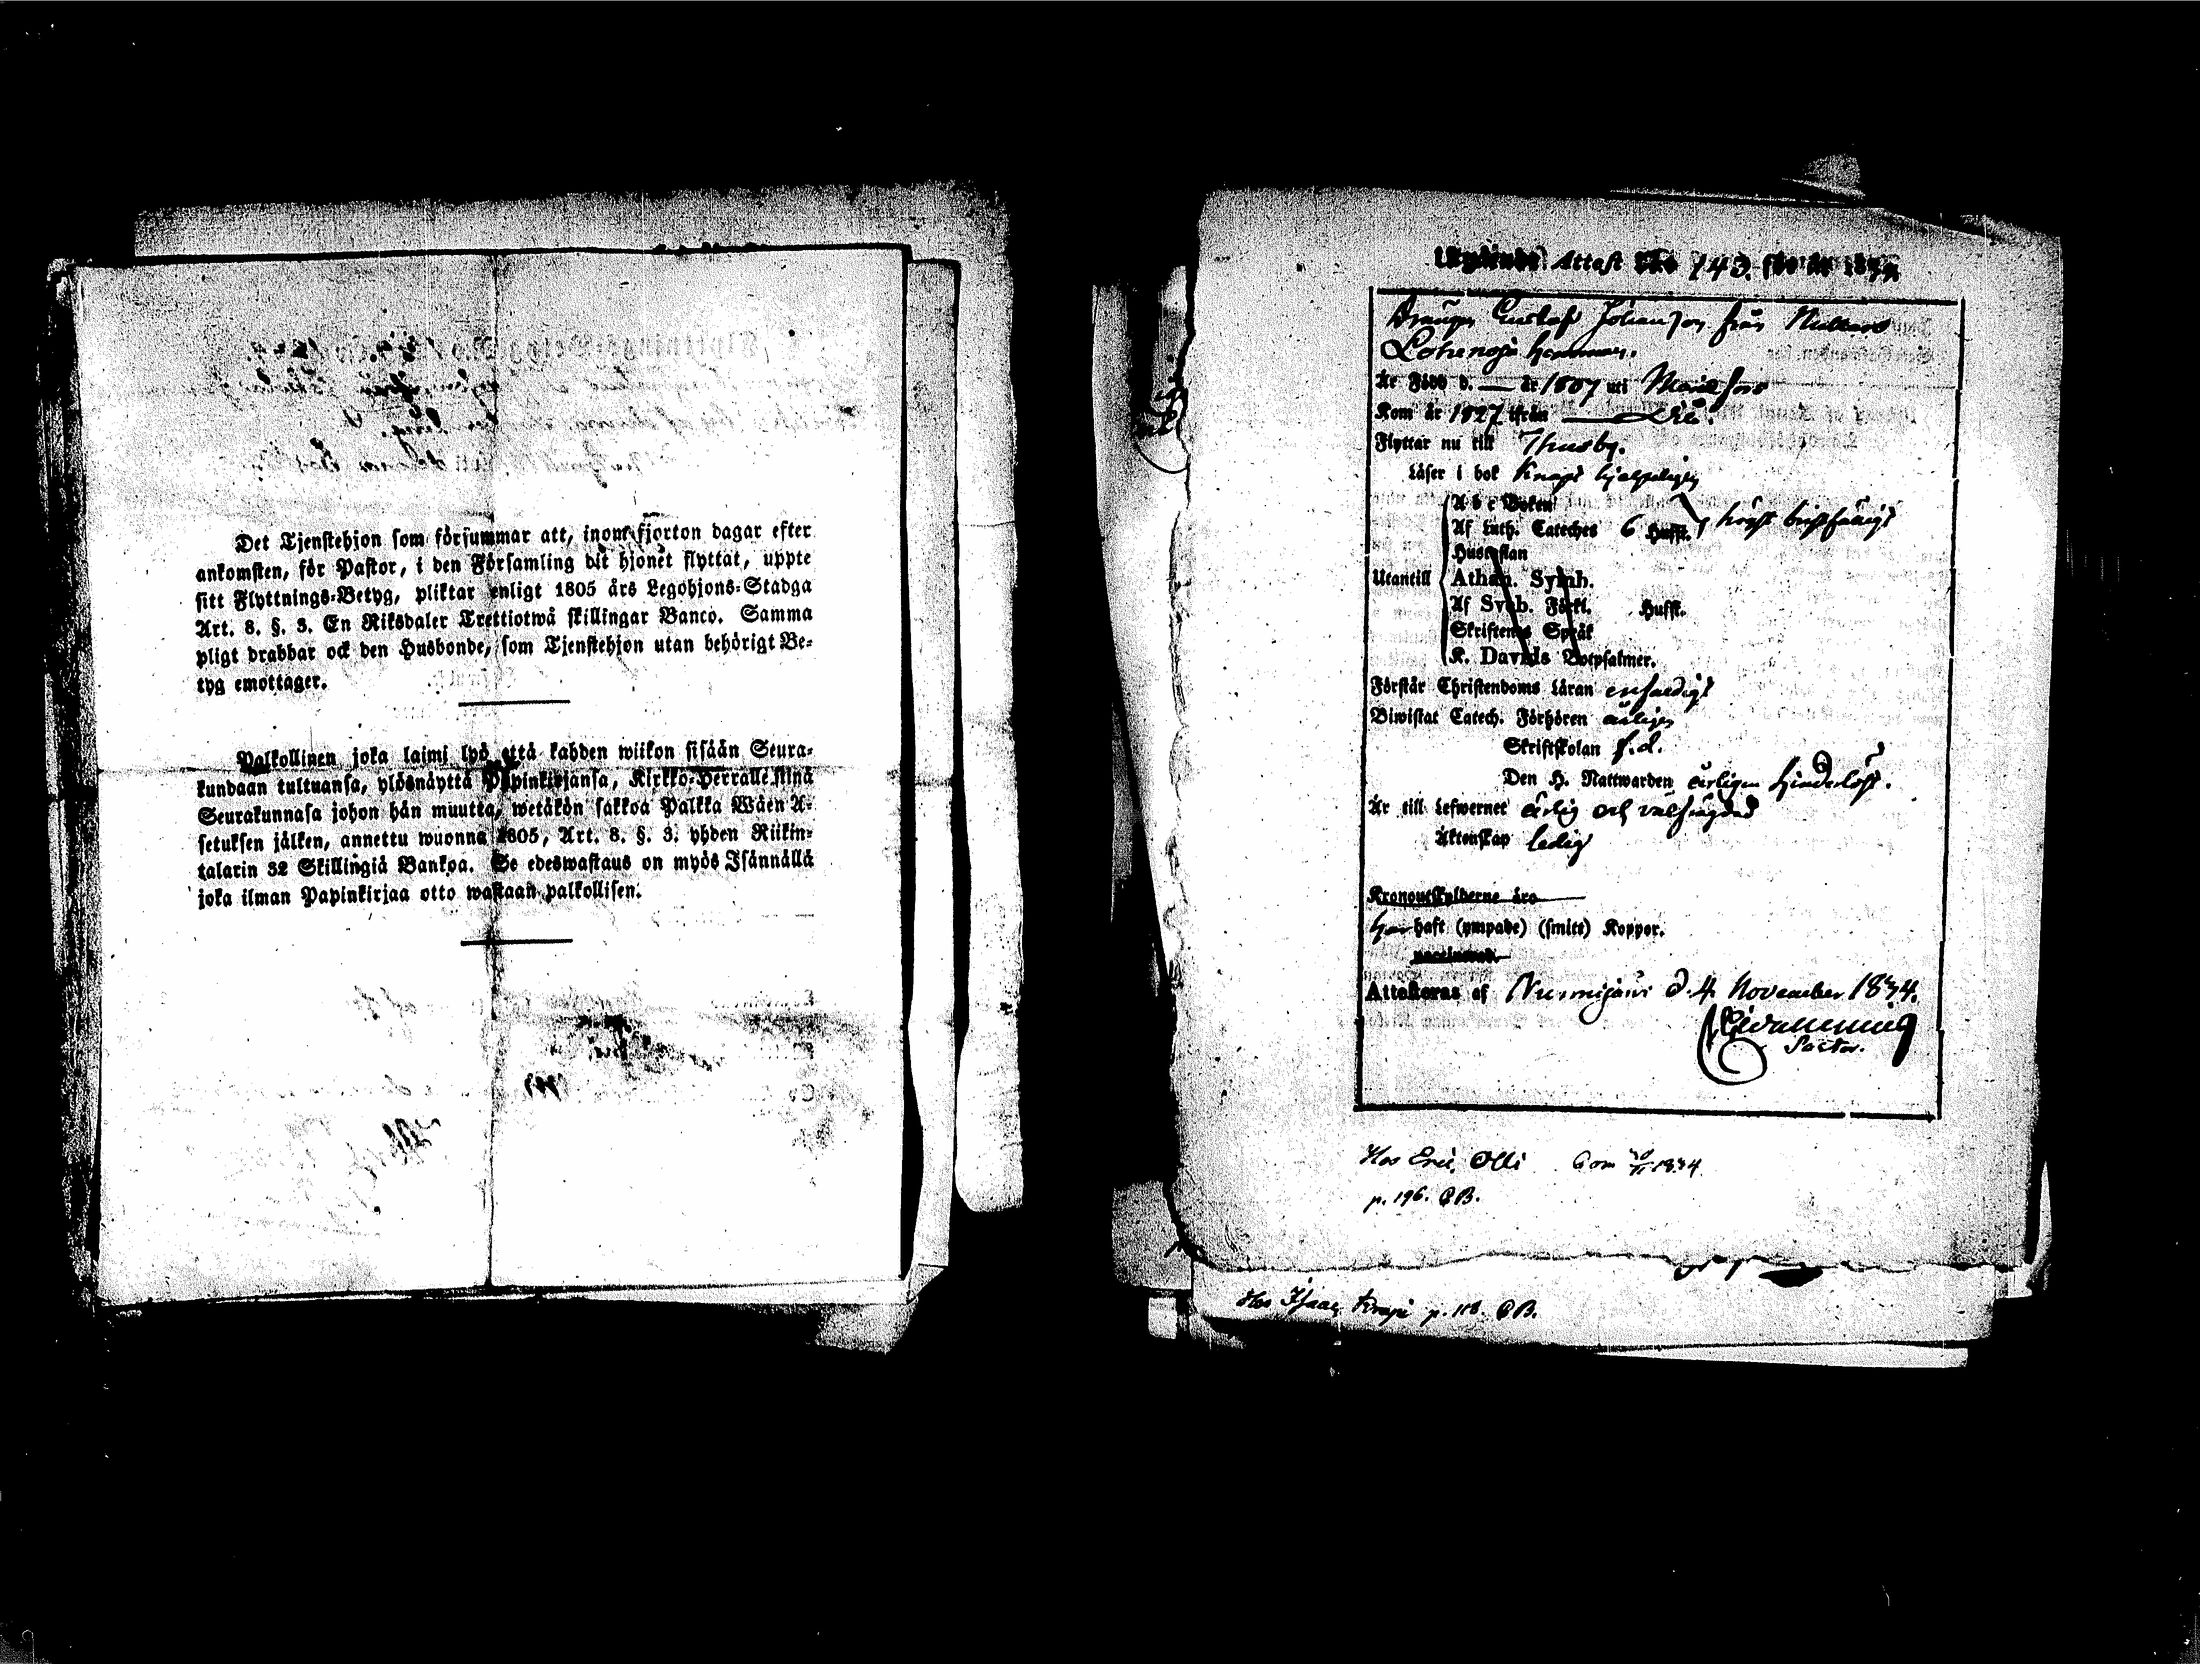 Det Tjenstehjon som försummar att, inom fjorton dagar efter
ankomsten, för Pastor, i den Församling dit hjonet flyttat, uppte
sitt Flyttnings-Betyg, pliktar enligt 1805 års Legohjons-Stadga
Art. 8. §. 3. En Riksdaler Trettiotwå skillingar Banco. Samma
pligt drabbar ock den Husbonde, som Tjenstehjon utan behörigt Be-
tyg emottager.
Palkollinen joka laimi lyö että kahden wiikon sisään Seura-
kundaan tultuansa, ylösnäyttä Papinkirjansa, Kirkko-Herralle siinä
Seurakunnasa johon hän muutta, wetäkön sakkoa Palkka Wäen A-
setuksen jälken, annettu wuonna 1805, Art. 8. §. 3. yhden Riikin-
talarin 32 Skillingiä Bankoa. Se edeswastaus on myös Isännällä
joka ilman Papinkirjaa otto wastaan palkollisen.
Attest 143.
Drängen Gustaf Johansson från
hemman.
Är Född d. — år 1807 uti
Kom år 1827 ifrån
Flyttar nu till Thusby.
Läser i bok Knapt hjelpeligen
A b c Boken
Af Luth. Cateches 6 Hufst. högst bristfälligt
Hustaflan
Utantill Athan. Symb.
Af Sveb. Förkl. Hufst.
Skriftenes Språk
K. Davids Botpsalmer.
Förstår Christendoms Läran enfaldigt
Biwistat Catech. Förhören årligen
Skriftskolan s. d.
Den H. Nattwarden årligen Hinderlöst.
Är till Lefwernet ärlig och välfrägdad
Äktenskap ledig
Kronoutskylderne äro
har haft (ympade) (smitt) Koppor.
vaccinerad.
Attesteras af Nurmijärvi d. 4 November 1834.
Pastor.
Hos Eric Olli Kom 1834
p. 196. CB.
Hos Isaac Krapi p. 118. CB.